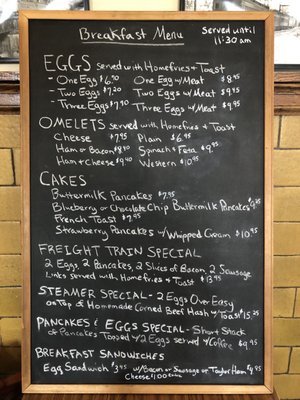 Breakfast Menu
Served until
11:30 am
EGGS served with Homefries + Toast
- One Egg $6.90 One Egg w/Meat $8.95
- Two Eggs $7.20 Two Eggs w/Meat $9.95
- Three Eggs $7.90 Three Eggs w/Meat $9.95
OMELETS served with Homefries + Toast
Cheese $7.95 Plain $6.95
Ham or Bacon $8.90 Spinach + Feta $9.95
Ham + Cheese $9.40 Western $10.95
CAKES
Buttermilk Pancakes $7.95
Blueberry or Chocolate Chip Buttermilk Pancakes
French Toast $7.95
Strawberry Pancakes w/Whipped Cream $10.95
FREIGHT TRAIN SPECIAL
2 Eggs, 2 Pancakes, 2 Slices of Bacon, 2 Sausage
Links served with Homefries + Toast $13.95
STEAMER SPECIAL - 2 Eggs Over Easy
on Top of Homemade Corned Beef Hash w/Toast $15.25
PANCAKES & EGGS SPECIAL - Short Stack
of Pancakes Topped w/2 Eggs served w/Coffee $9.95
BREAKFAST SANDWICHES
Egg Sandwich $3.95 w/Bacon or Sausage or Taylor Ham $4.95
Cheese $1.00 Extra